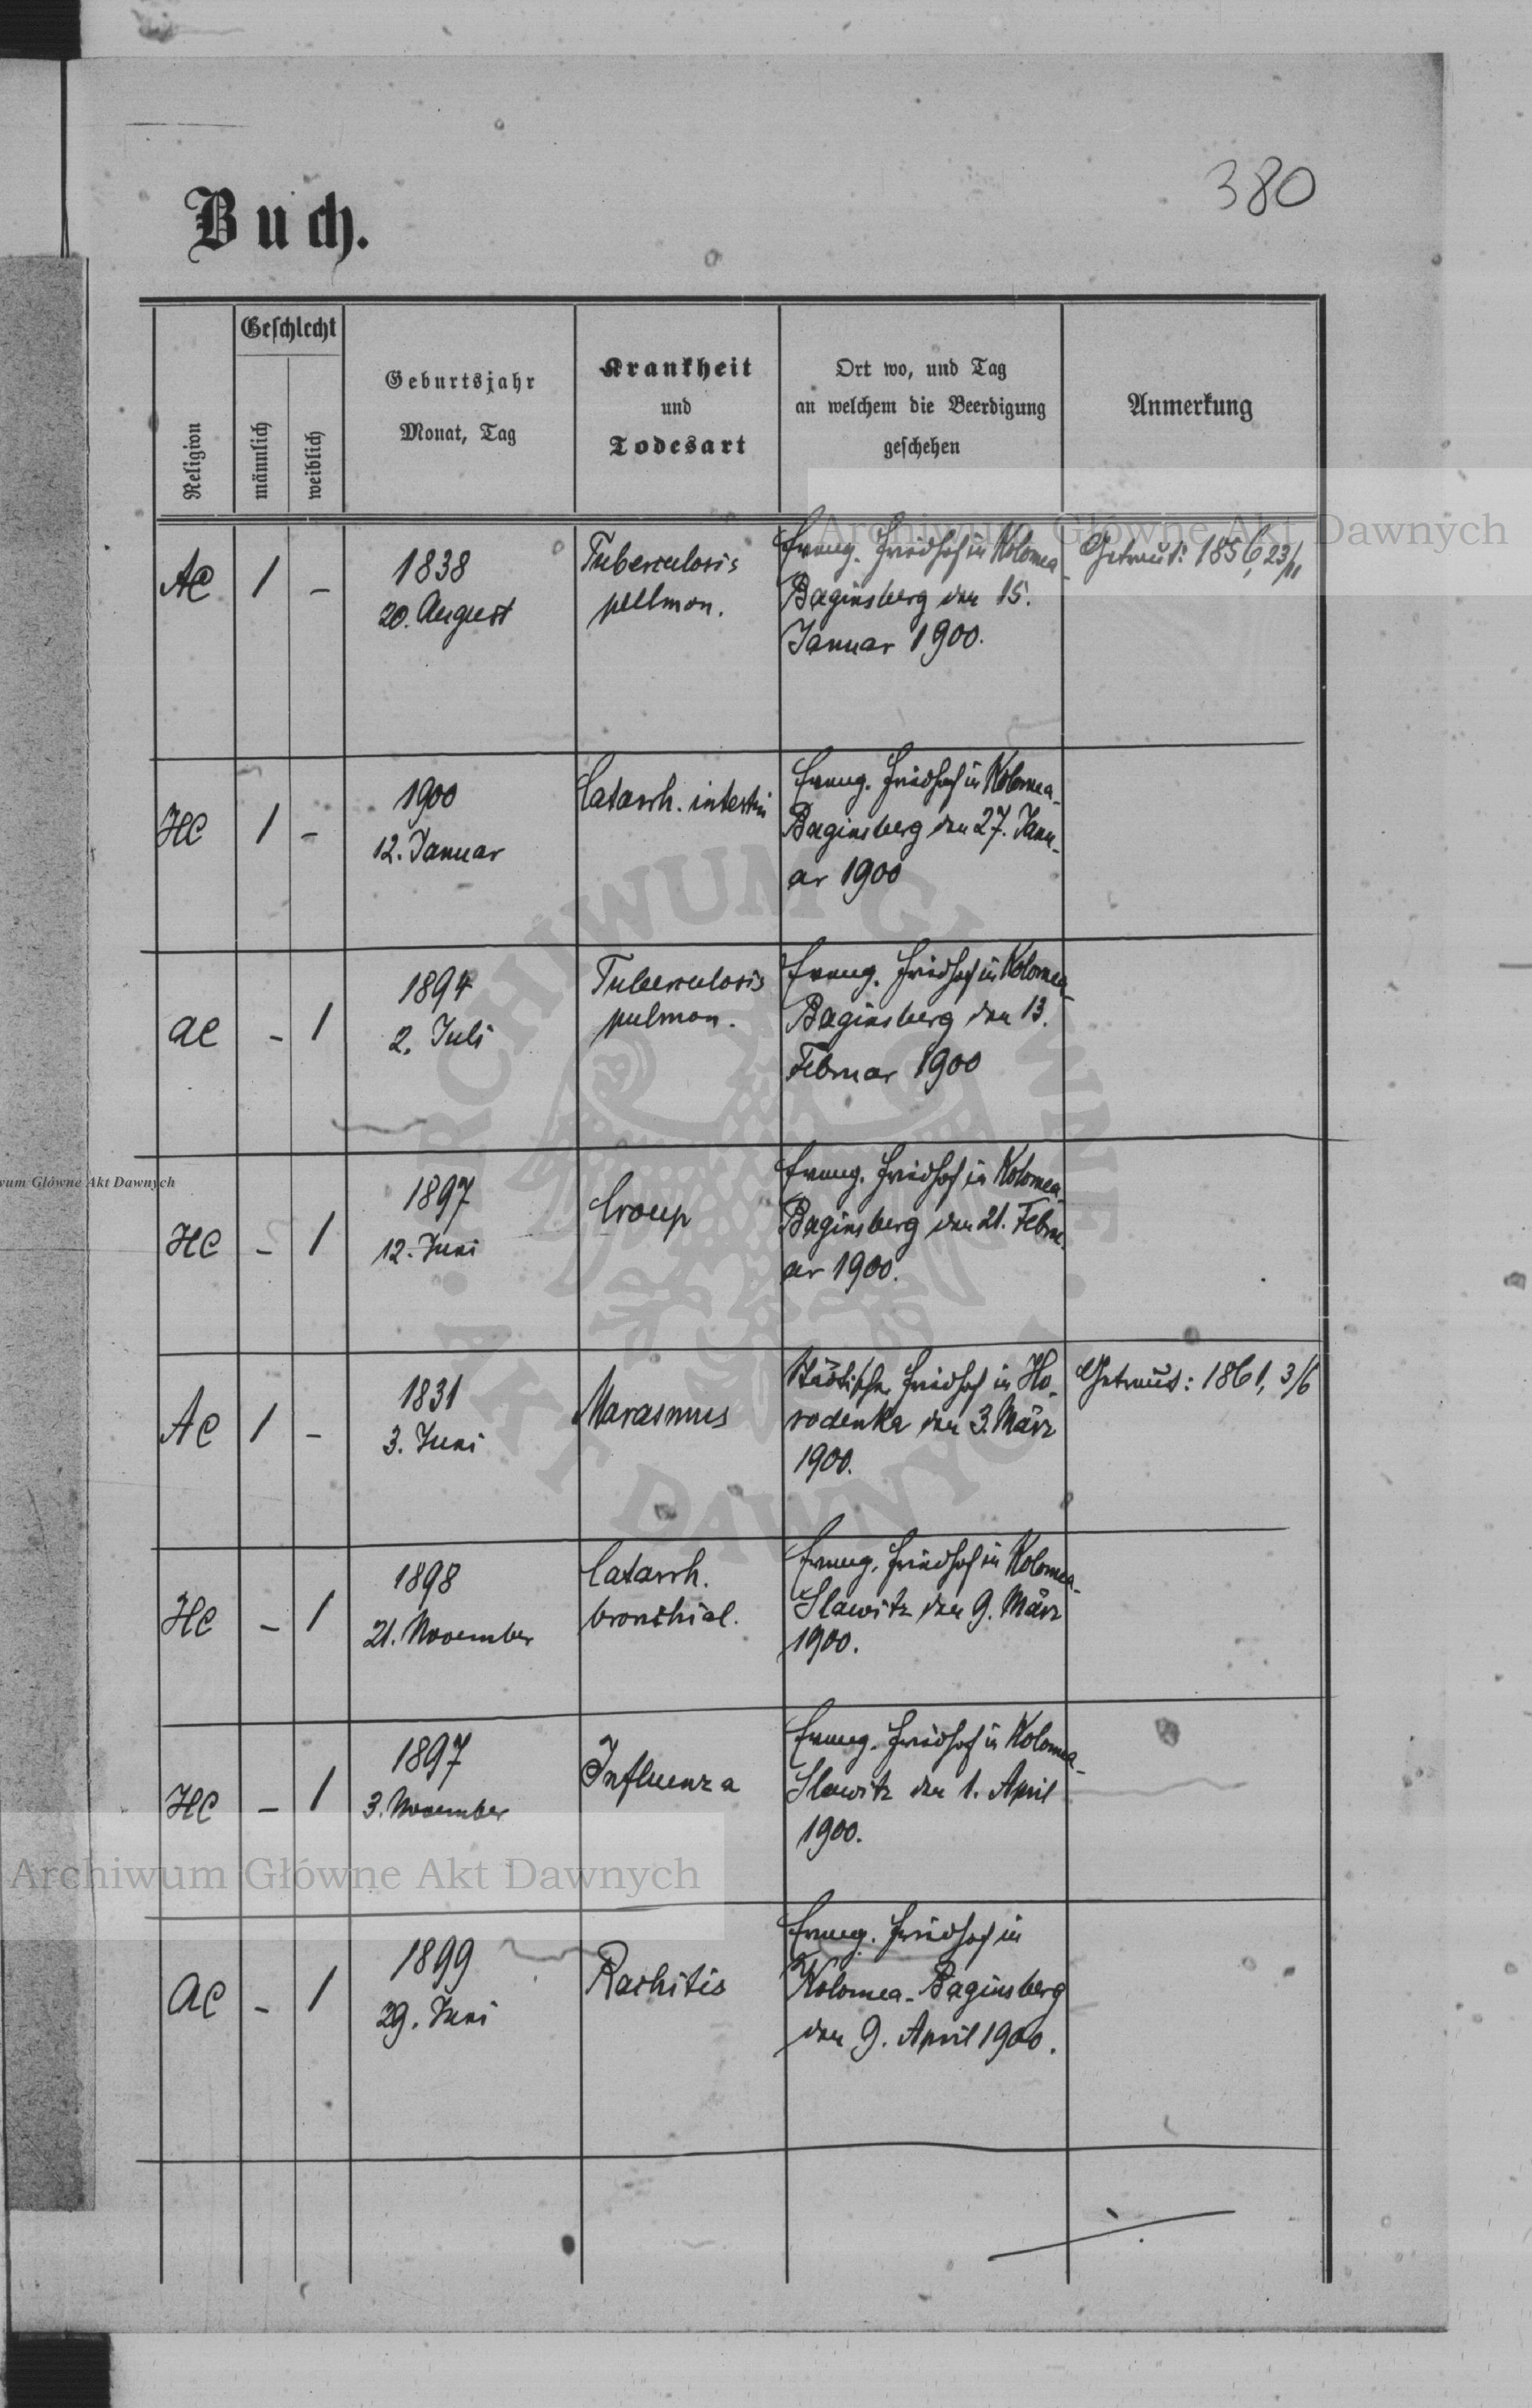 380
Buch.
Religion
Geschlecht
männlich
weiblich
Geburtsjahr
Monat, Tag
Krankheit
und
Todesart
Ort wo, und Tag
an welchem die Beerdigung
geschehen
Anmerkung
AC 1 –
1838
20. August
Tuberculosis
pullmon.
Evang. Friedhof in Kolomea-
Baginsberg den 15.
Januar 1900.
Getraut: 1856, 23/11
HC 1 –
1900
12. Januar
Catarrh. intestin
Evang. Friedhof in Kolomea-
Baginsberg den 27. Janu-
ar 1900
AC – 1
1894
2. Juli
Tuberculosis
pulmon.
Evang. Friedhof in Kolomea-
Baginsberg den 13.
Februar 1900
HC – 1
1897
12. Juni
Croup
Evang. Friedhof in Kolomea-
Baginsberg den 21. Febru-
ar 1900.
AC 1 –
1831
3. Juni
Marasmus
Städtischer Friedhof in Ho-
rodenka den 3. März
1900.
Getraut: 1861, 3/6
HC – 1
1898
21. November
Catarrh.
bronchial.
Evang. Friedhof in Kolomea-
Slawitz den 9. März
1900.
HC – 1
1897
3. November
Influenza
Evang. Friedhof in Kolomea-
Slawitz den 1. April
1900.
AC – 1
1899
29. Juni
Rachitis
Evang. Friedhof in
Kolomea-Baginsberg
den 9. April 1900.
Archiwum Główne Akt Dawnych
wum Główne Akt Dawnych
Archiwum Główne Akt Dawnych
ARCHIWUM GŁÓWNE
AKT DAWNYCH